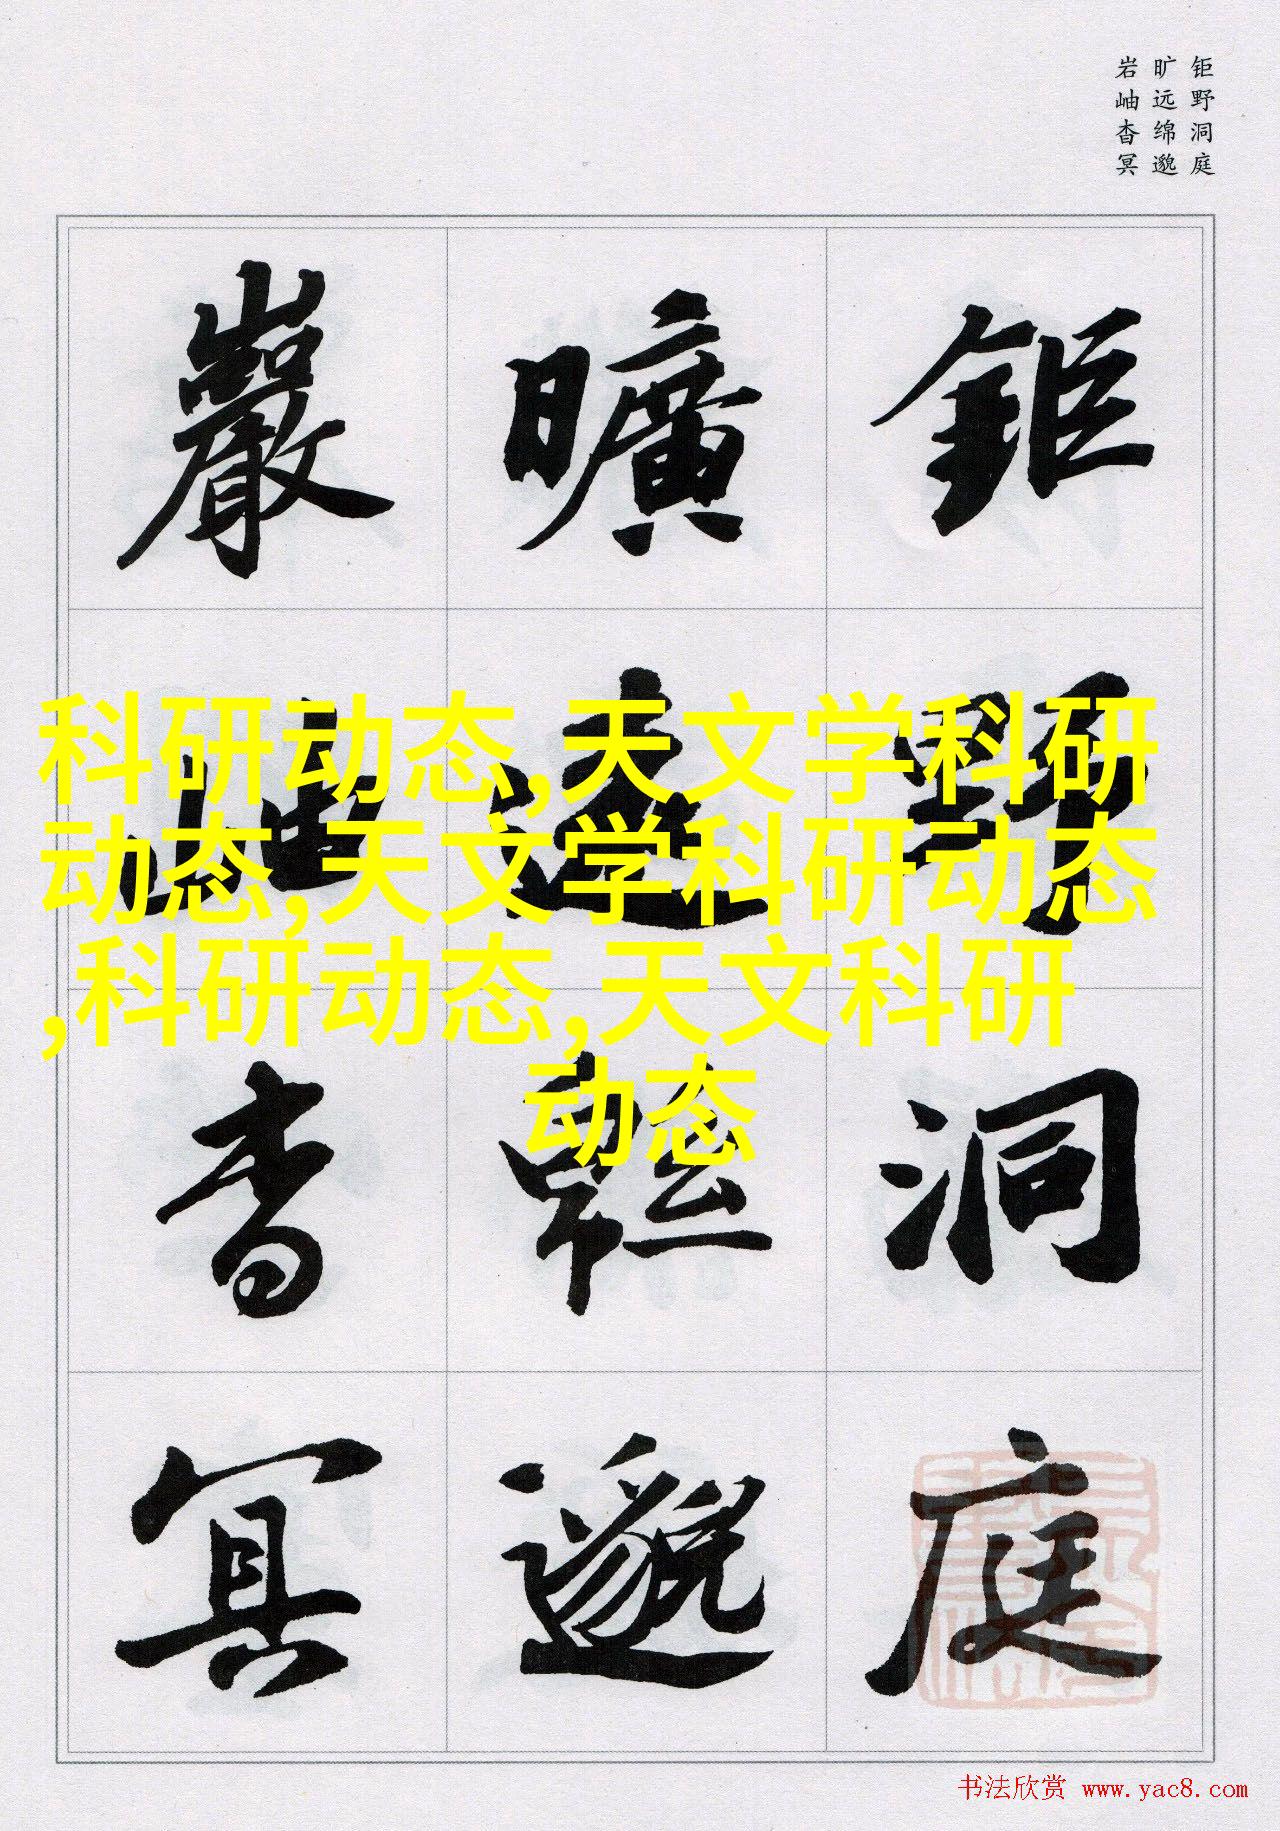 钜野洞庭
旷远绵邈
岩岫杳冥
鉅野洞庭
曠遠緜邈
巖岫杳冥
科研动态,天文学科研
动态,天文学科研动态
,科研动态,天文科研
动态
书法欣赏 www.yac8.com